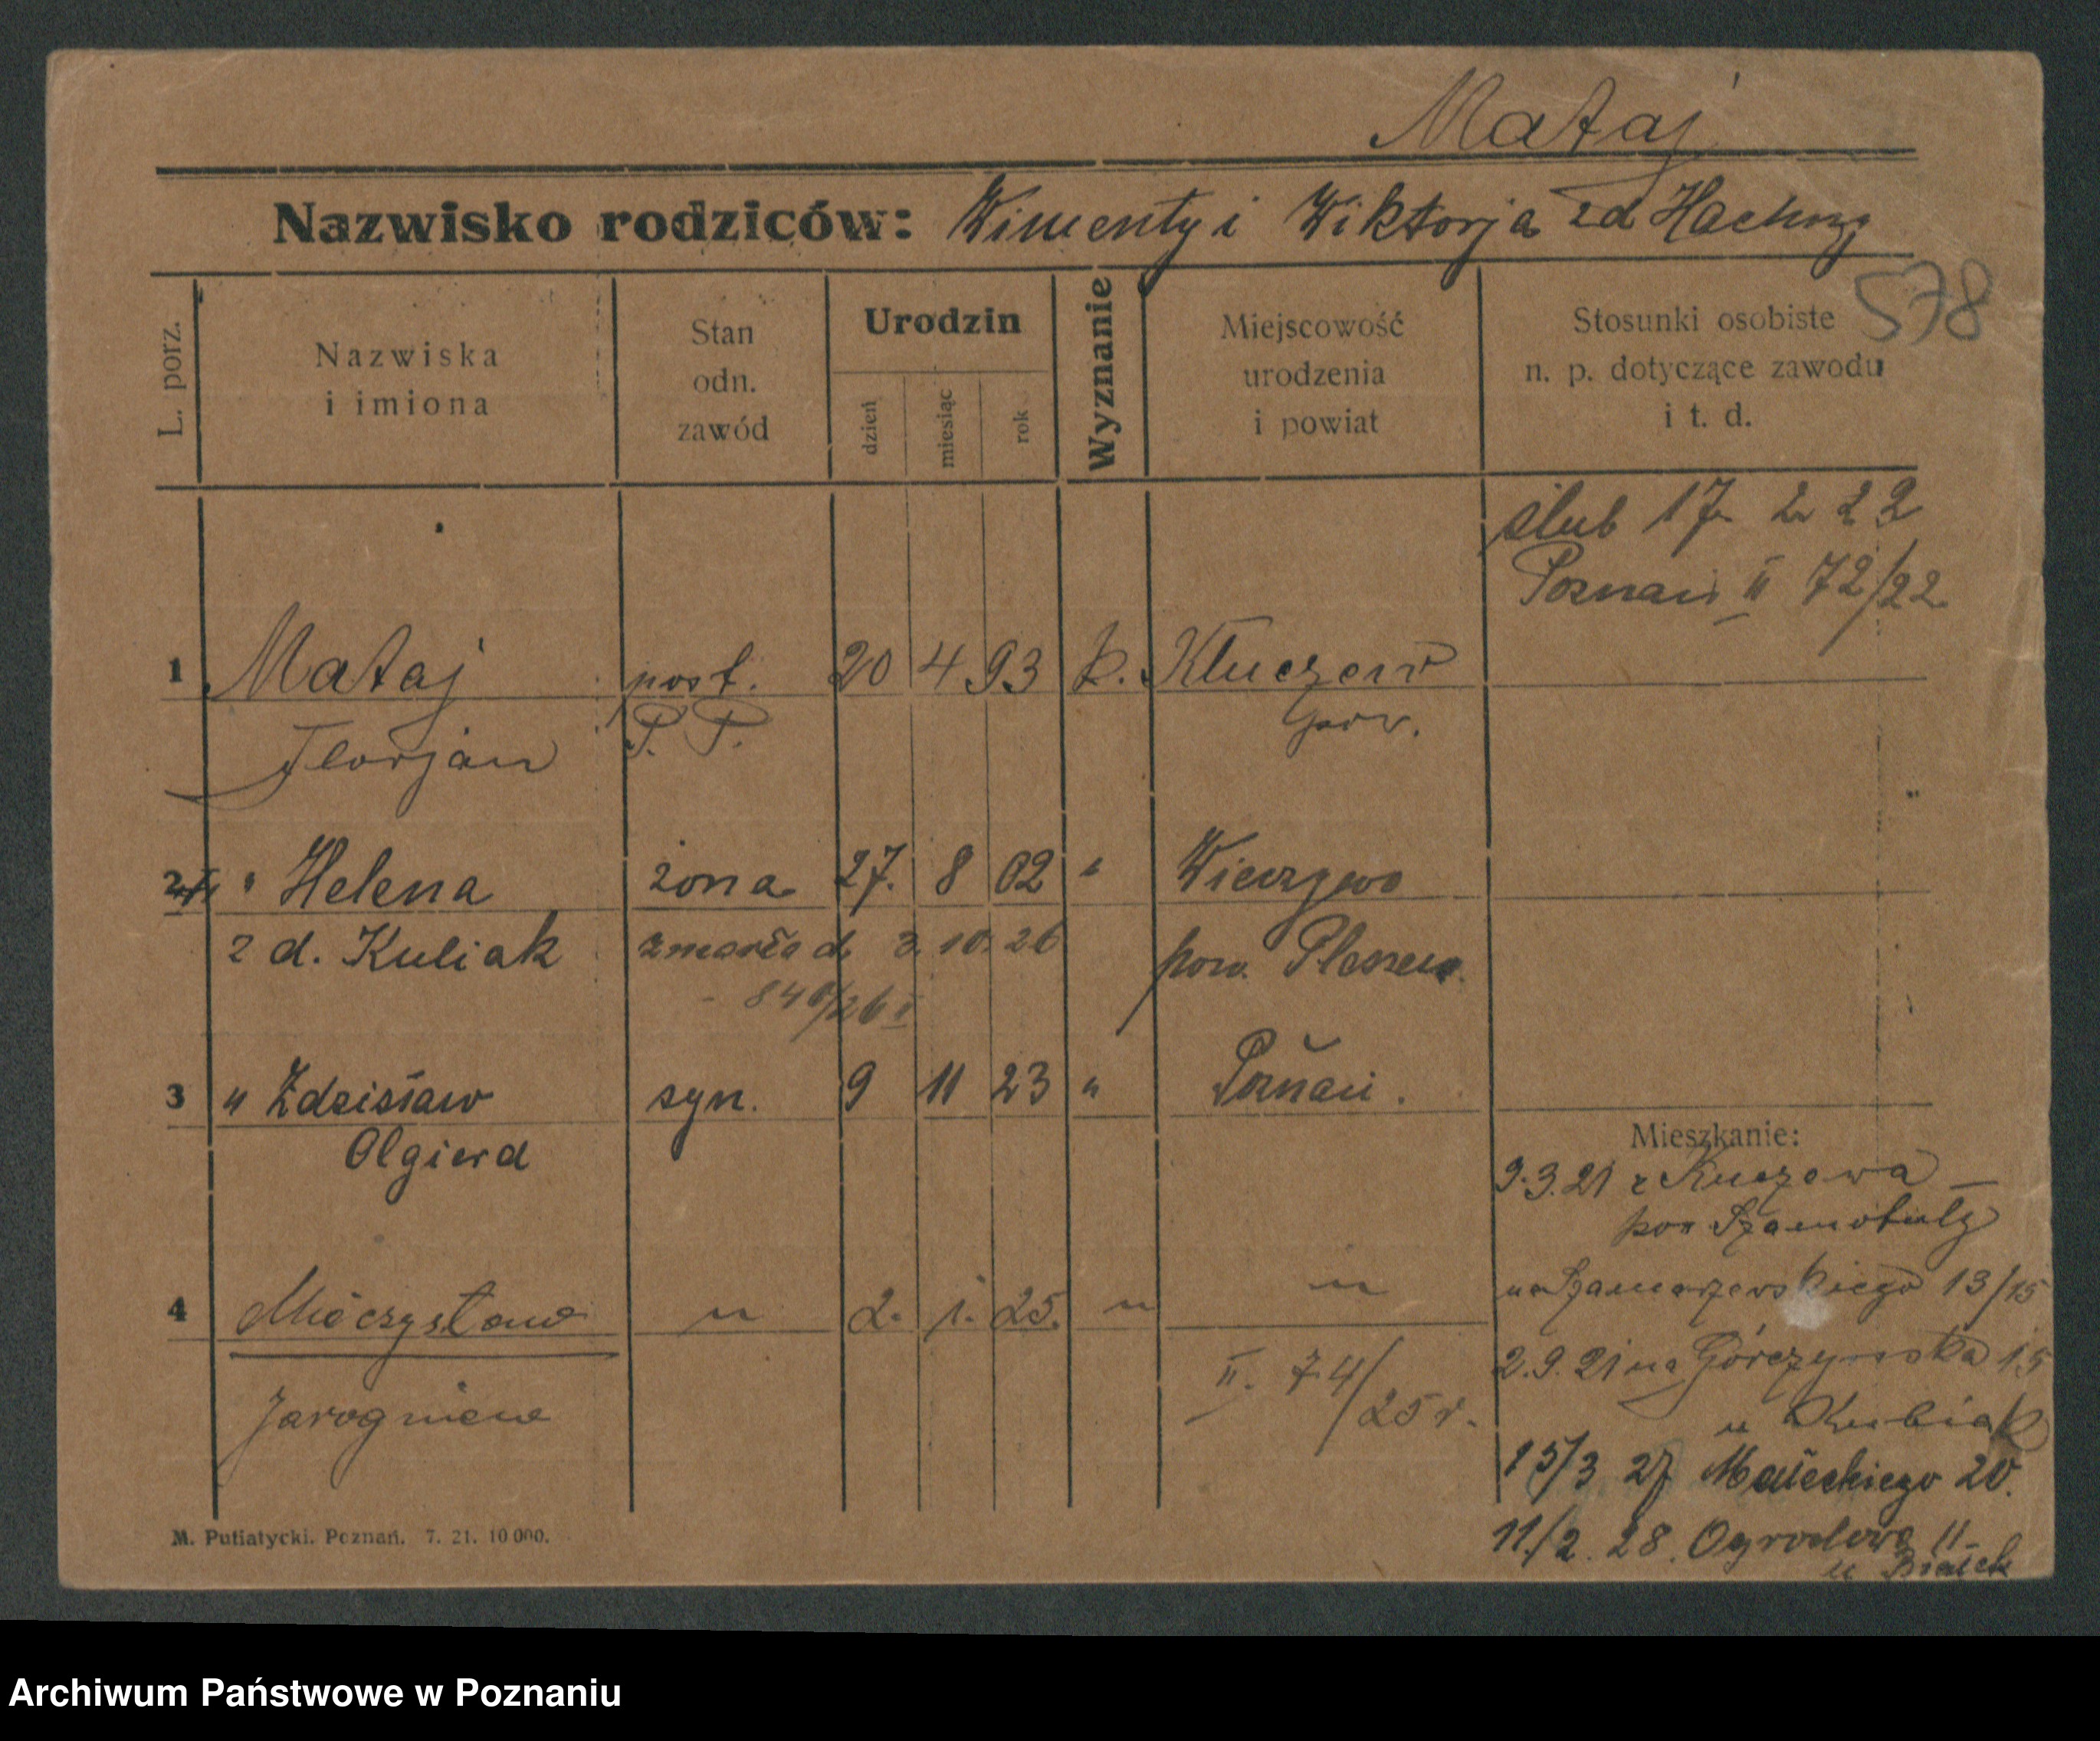 Mataj
Nazwisko rodziców: Wincenty i Wiktorja zd
578
L. porz.
Nazwiska
i imiona
Stan
odn.
zawód
Urodzin
dzień
miesiąc
rok
Wyznanie
Miejscowość
urodzenia
i powiat
Stosunki osobiste
n. p. dotyczące zawodu
i t. d.
ślub 17 2 22
Poznań II 72/22
1 Mataj post. 20 4 93 k. Kluczewo
Florjan P. P.
2 " Helena żona 27. 8 02 "
z d. Kuliak zmarła d. 3. 10. 26 pow. Pleszew
3 " Zdzisław syn. 9 11 23 " Poznań.
Olgierd
Mieszkanie:
9.3.21 z
pow Szamotuły
4 Mieczysław " 2. 1. 25. " "
na Szamarzewskiego 13/15
Jarogniew II. 74/25 r.
2.9.21 na Górczyńska 15
u Kubiak
15/3 27 Małeckiego 20.
11./2. 28. Ogrodowa 11
M. Putiatycki. Poznań. 7. 21. 10 000.
Archiwum Państwowe w Poznaniu